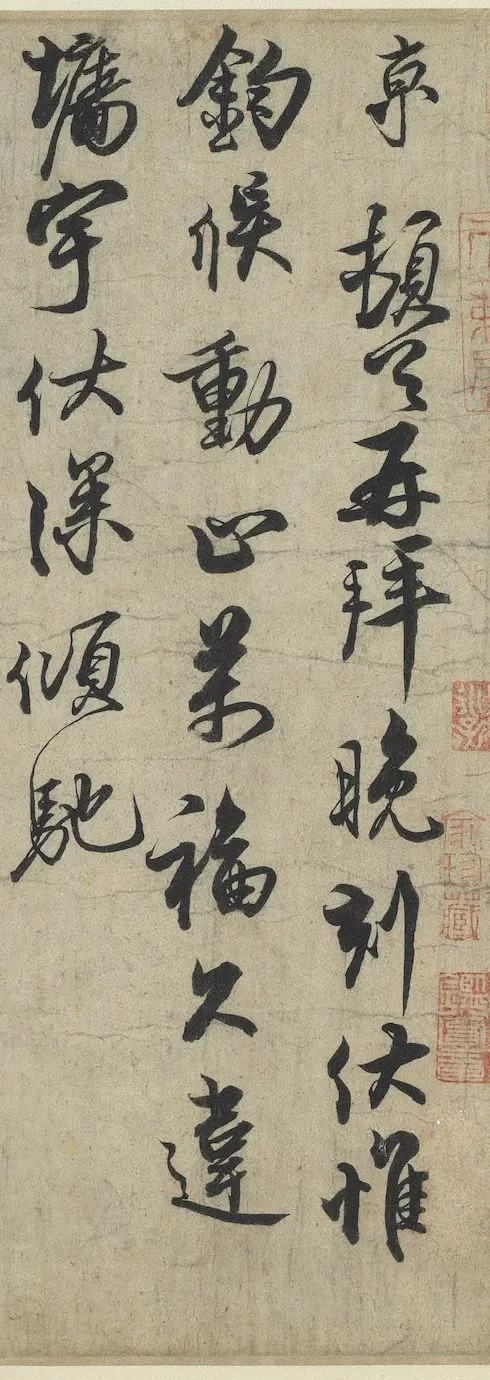 京 頓首再拜晚刻伏惟
鈞候動止萬福久違
墻宇伏深傾馳
珍藏